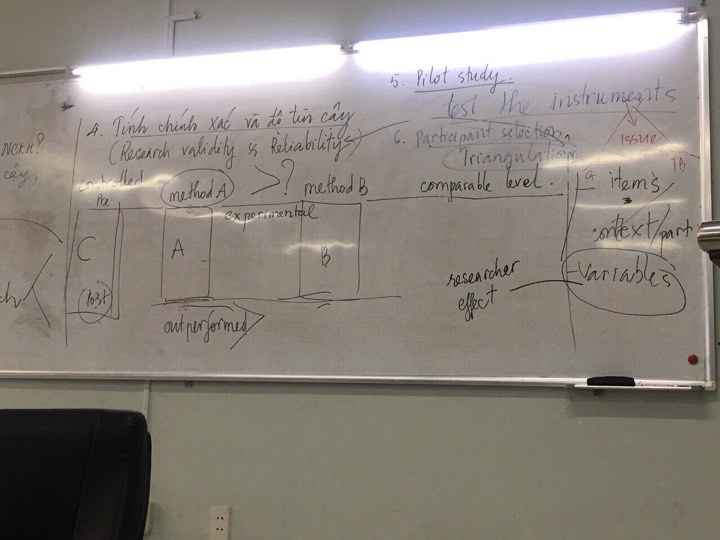 NCKH?
cậy,
4. Tính chính xác và độ tin cậy
(Research validity & Reliability)
controlled
method A
>?
method B
experimental
C
A
B
outperformed
5. Pilot study.
test the instruments
6. Participant selection
Triangulation
comparable level.
issue
items
context/part
- variables
researcher
effect